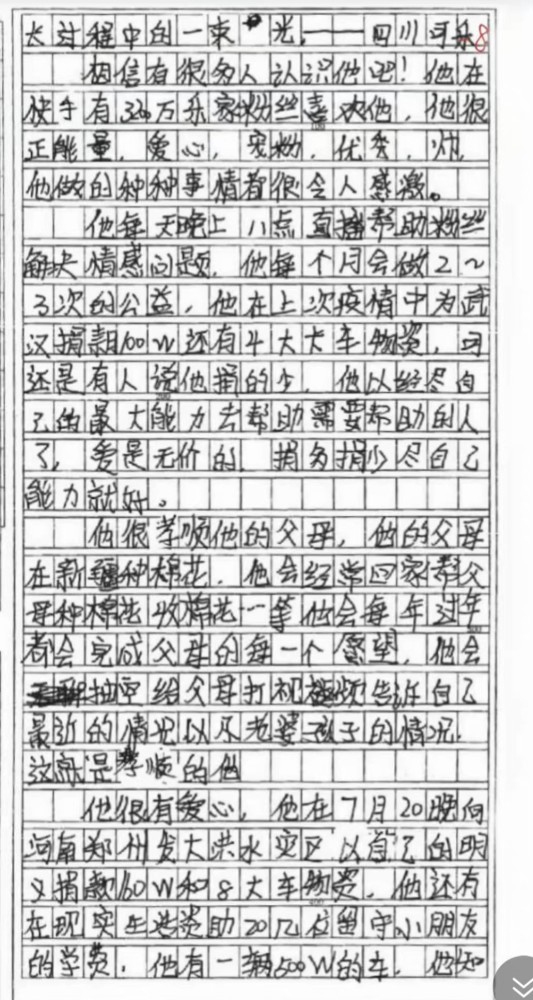 长过程中的一束光,——四川可乐8
相信有很多人认识他吧!他在
快手有320万乐家粉丝喜欢他,他很
正能量,爱心,宠粉,优秀,帅,
他做的种种事情都很令人感激。
他每天晚上八点直播帮助粉丝
解决情感问题,他每个月会做2~
3次的公益,他在上次疫情中为武
汉捐款100W还有4大卡车物资,可
还是有人说他捐的少,他以经尽自
己的最大能力去帮助需要帮助的人
了,爱是无价的,捐多捐少尽自己
能力就好。
他很孝顺他的父母,他的父母
在新疆种棉花,他会经常回家帮父
母种棉花收棉花…等他会每年过年
都会完成父母的每一个愿望,他会
抽空给父母打视频告诉自己
最近的情况以及老婆孩子的情况.
这就是孝顺的他
他很有爱心,他在7月20晚向
河南郑州发大洪水灾区以自己的明
义捐款160W和8大车物资,他还有
在现实生活资助20几位留守小朋友
的学费,他有一辆500W的车,他知